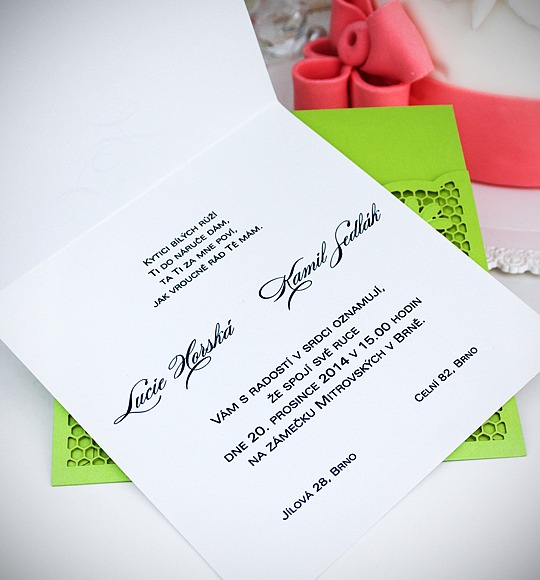 Kytici bílých růží
ti do náruče dám,
ta ti za mne poví,
jak vroucně rád tě mám.
Lucie Horská
Kamil Sedlák
Vám s radostí v srdci oznamují,
že spojí své ruce
dne 20. prosince 2014 v 15.00 hodin
na zámečku Mitrovských v Brně.
Jílová 28, Brno
Celní 82, Brno